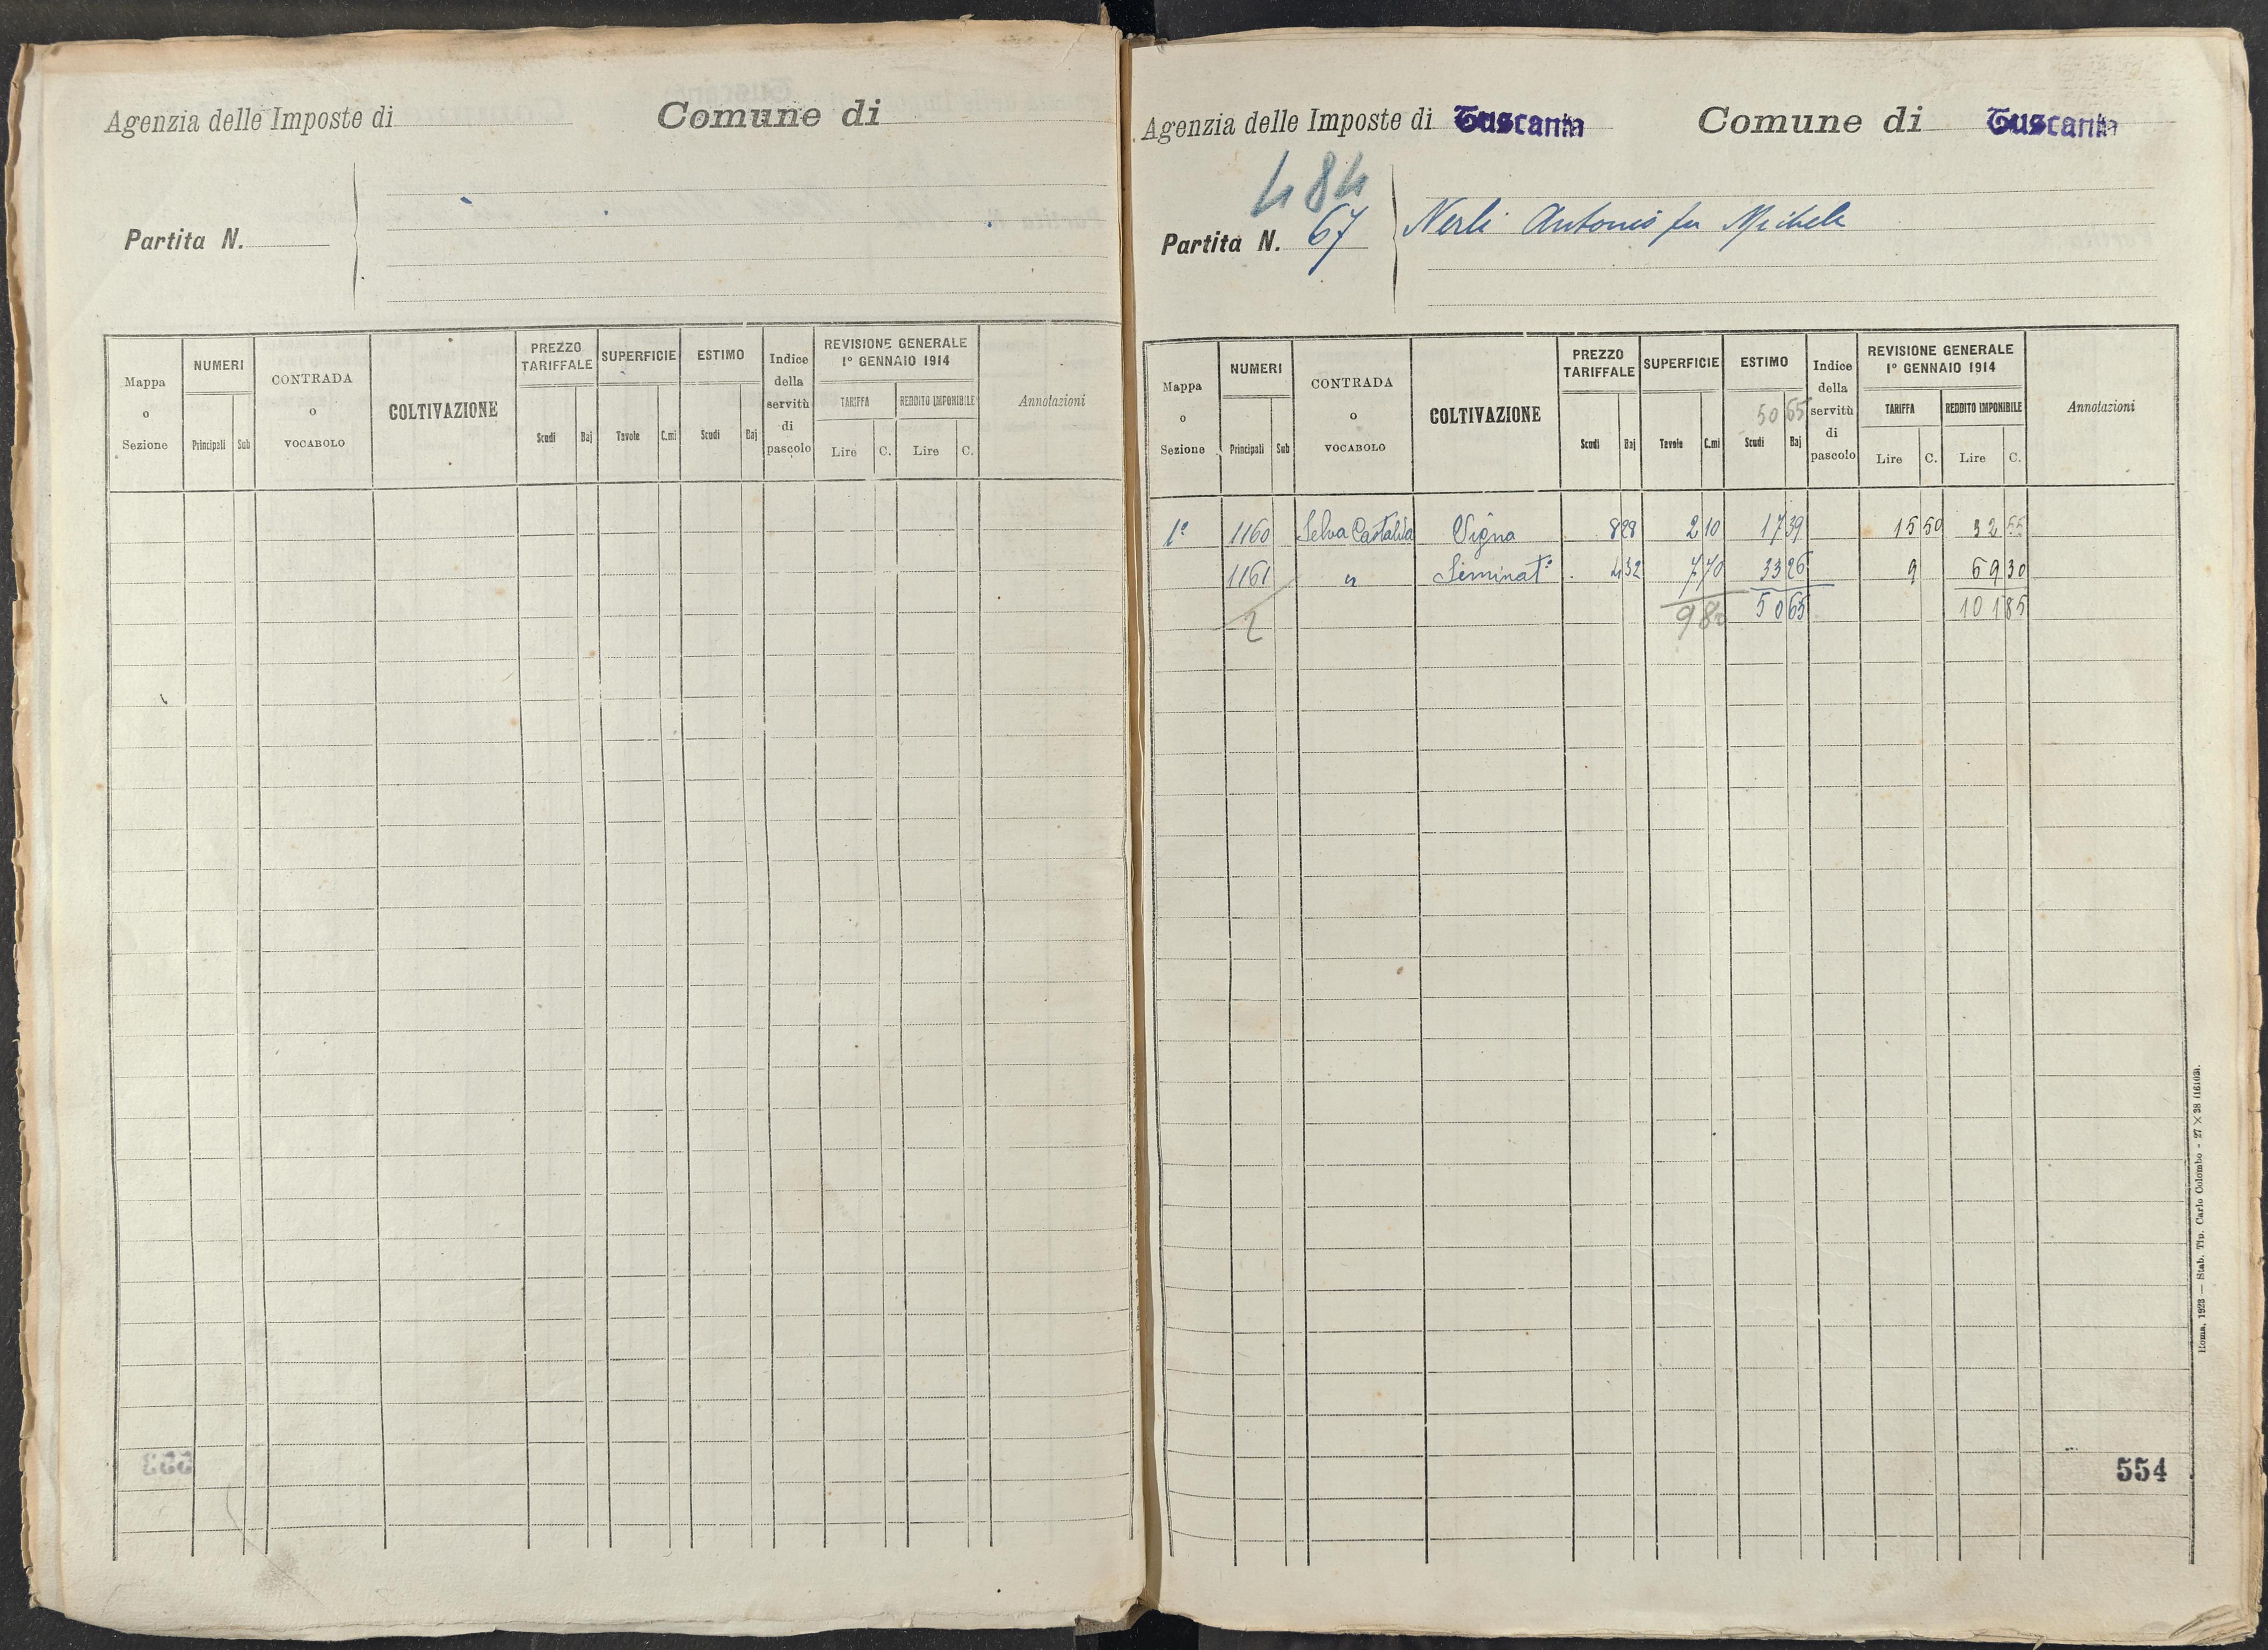 Agenzia delle Imposte di
Comune di
Partita N.
Mappa o Sezione
NUMERI
Principali
Sub
CONTRADA o VOCABOLO
COLTIVAZIONE
PREZZO TARIFFALE
Scudi
Baj
SUPERFICIE
Tavole
C.mi
ESTIMO
Scudi
Baj
Indice della servitù di pascolo
REVISIONE GENERALE
1° GENNAIO 1914
TARIFFA
REDDITO IMPONIBILE
Lire
C.
Lire
C.
Annotazioni
Agenzia delle Imposte di Tuscania
Comune di Tuscania
484
Partita N. 67
Nerli Antonio fu Michele
Mappa o Sezione
NUMERI
Principali
Sub
CONTRADA o VOCABOLO
COLTIVAZIONE
PREZZO TARIFFALE
Scudi
Baj
SUPERFICIE
Tavole
C.mi
ESTIMO
50 65
Scudi
Baj
Indice della servitù di pascolo
REVISIONE GENERALE
1° GENNAIO 1914
TARIFFA
REDDITO IMPONIBILE
Lire
C.
Lire
C.
Annotazioni
1° 1160 Selva Castalda Vigna 8 28 2 10 17 39 15 50 32 55
1161 " Seminat° 4 32 7 70 33 26 9 69 30
2 9 80 50 65 101 85
554
Roma, 1923 — Stab. Tip. Carlo Colombo - 27 × 38 (16103).